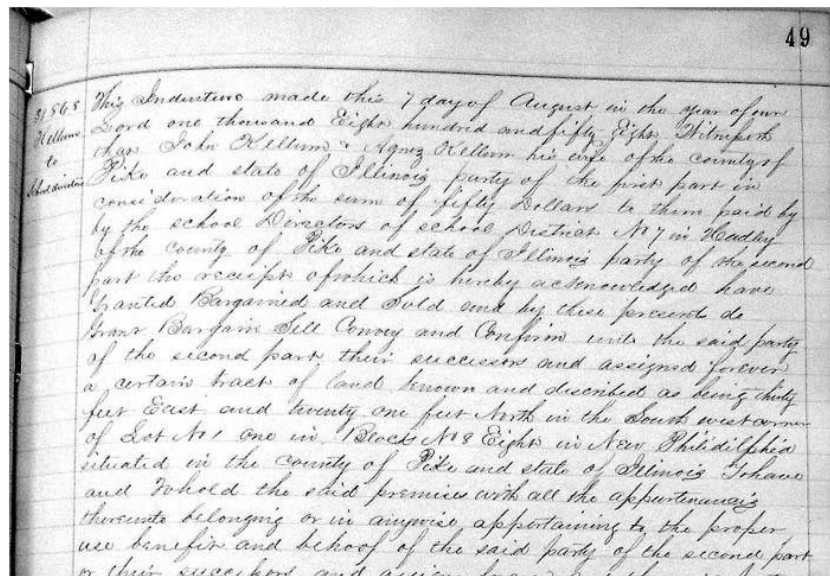 49
31568
Kellum
to
School directors
This Indenture made this 7 day of August in the year of our
Lord one thousand Eight hundred and fifty Eight Witnesseth
that John Kellum & Agnez Kellum his wife of the county of
Pike and state of Illinois party of the first part in
consideration of the sum of fifty Dollars to them paid by
by the school Directors of school District No 7 in Hadley
of the county of Pike and state of Illinois party of the second
part the receipt of which is hereby acknowledged have
Granted Bargained and Sold and by these presents do
Grant Bargain Sell Convey and Confirm unto the said party
of the second part their successors and assigns forever
a certain tract of land known and discribed as being thirty
feet East and twenty one feet North in the South west corner
of Lot No 1 one in Block No 8 Eight in New Philidilphia
situated in the county of Pike and state of Illinois To have
and To hold the said premises with all the appurtenancis
thereunto belonging or in anywise appertaining to the proper
use benefit and behoof of the said party of the second part
or their successors and